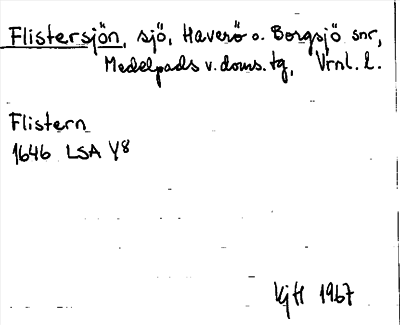 Flistersjön, sjö, Haverö o. Borgsjö snr,
Medelpads v. doms. tg, Vrnl. l.
Flistern
1646 LSA Y8
KjH 1967